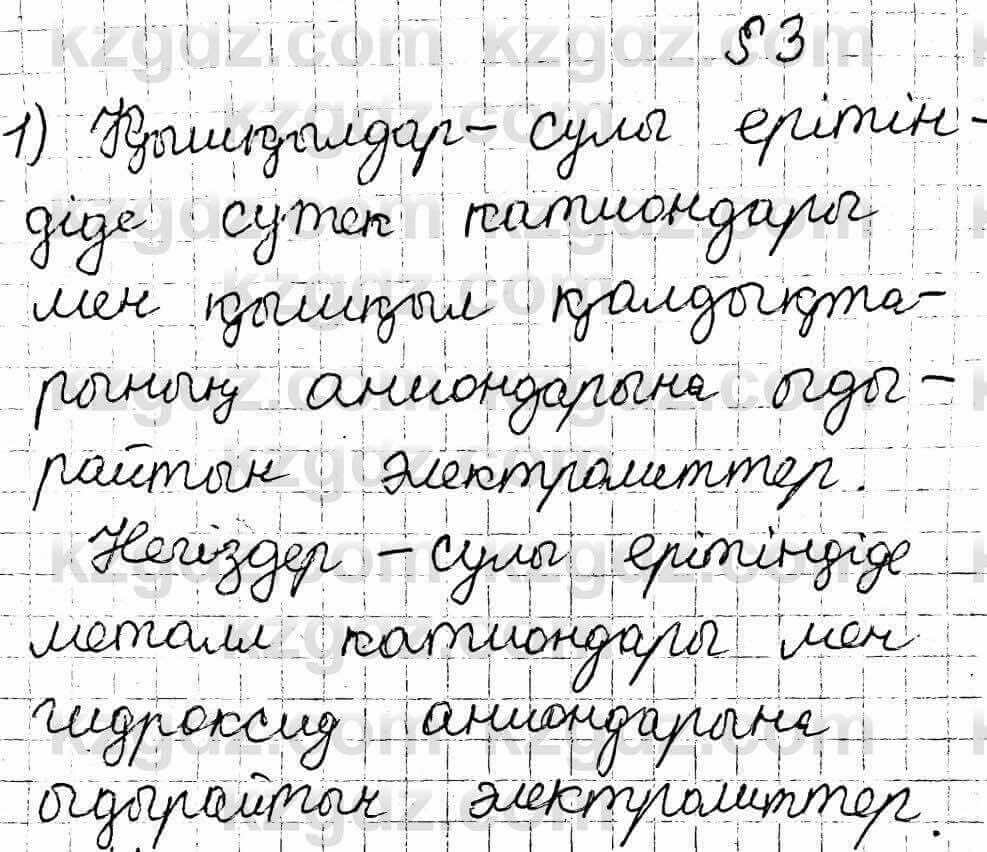 §3
1) Қышқылдар – сулы ерітін-
діде сутек катиондары
мен қышқыл қалдықта-
рының аниондарына ыды-
райтын электролиттер.
Негіздер – сулы ерітіндіде
металл катиондары мен
гидроксид аниондарына
ыдырайтын электролиттер.